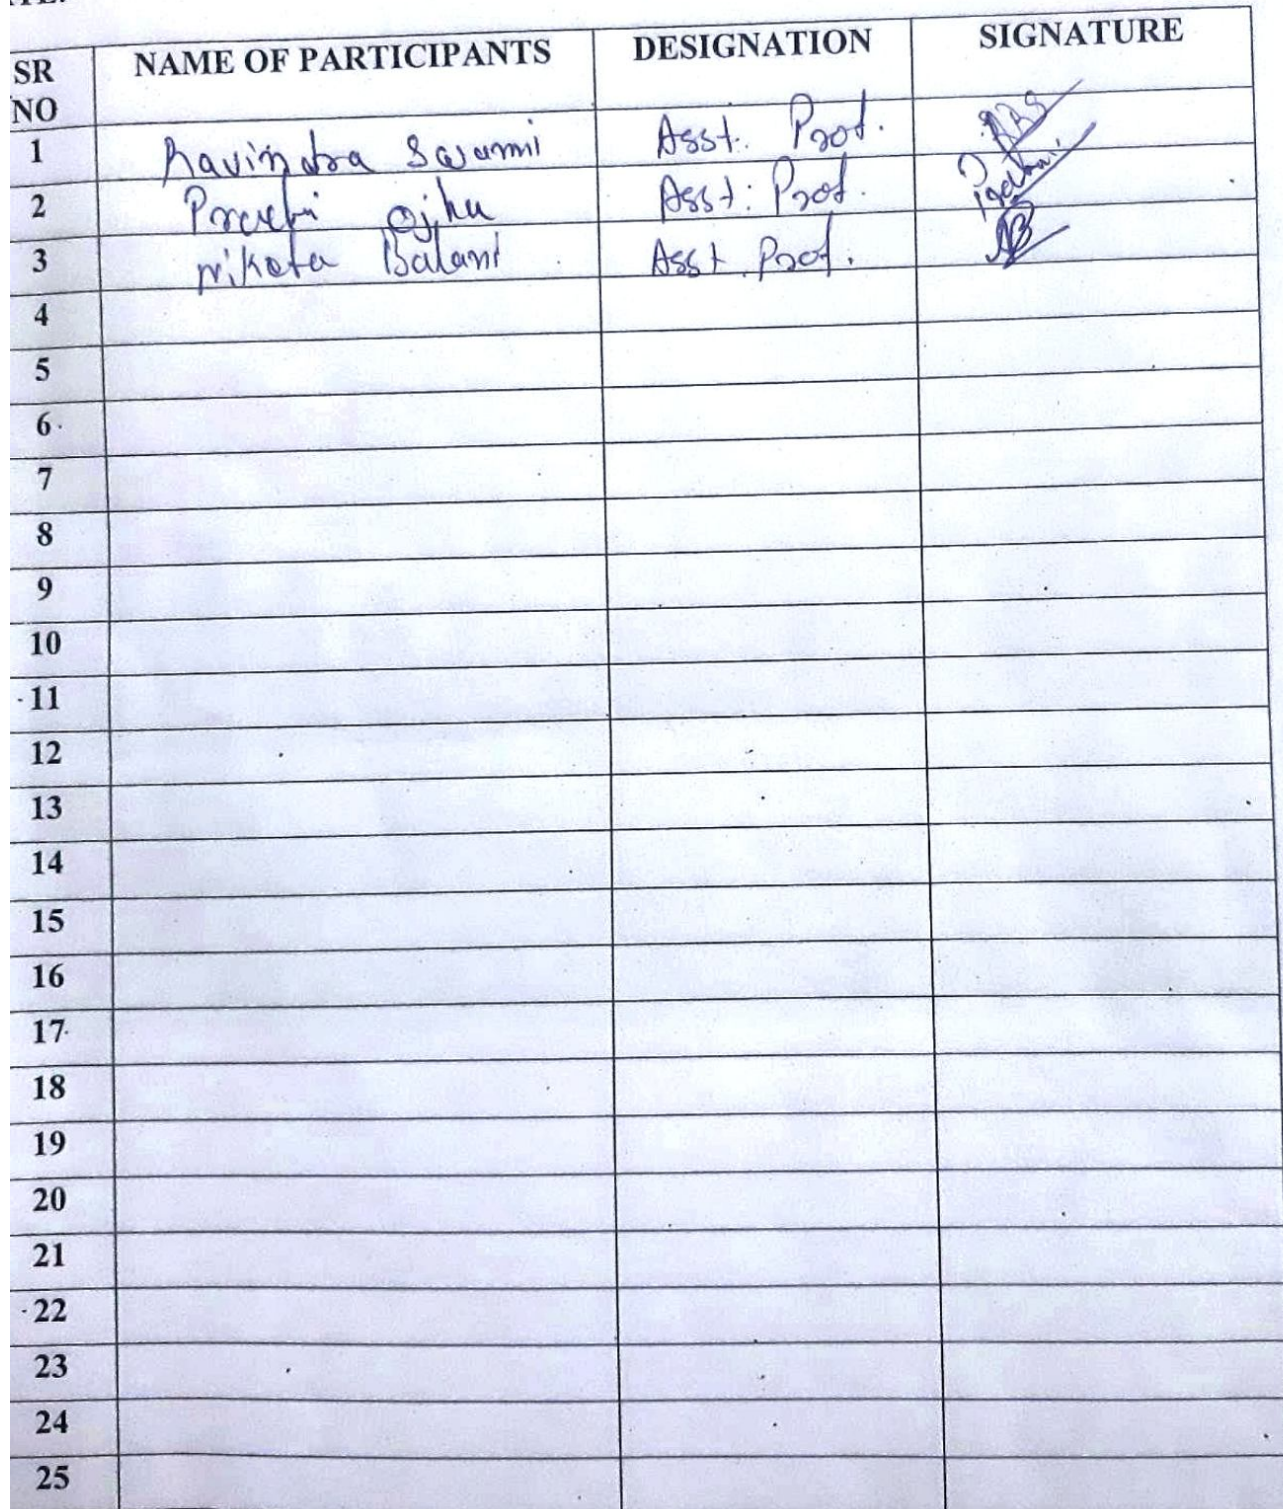 SR NO NAME OF PARTICIPANTS DESIGNATION SIGNATURE
1 Ravindra Swami Asst. Prof.
2 Preeti Ojha Asst. Prof.
3 Nikata Balani Asst. Prof.
4
5
6
7
8
9
10
11
12
13
14
15
16
17
18
19
20
21
22
23
24
25